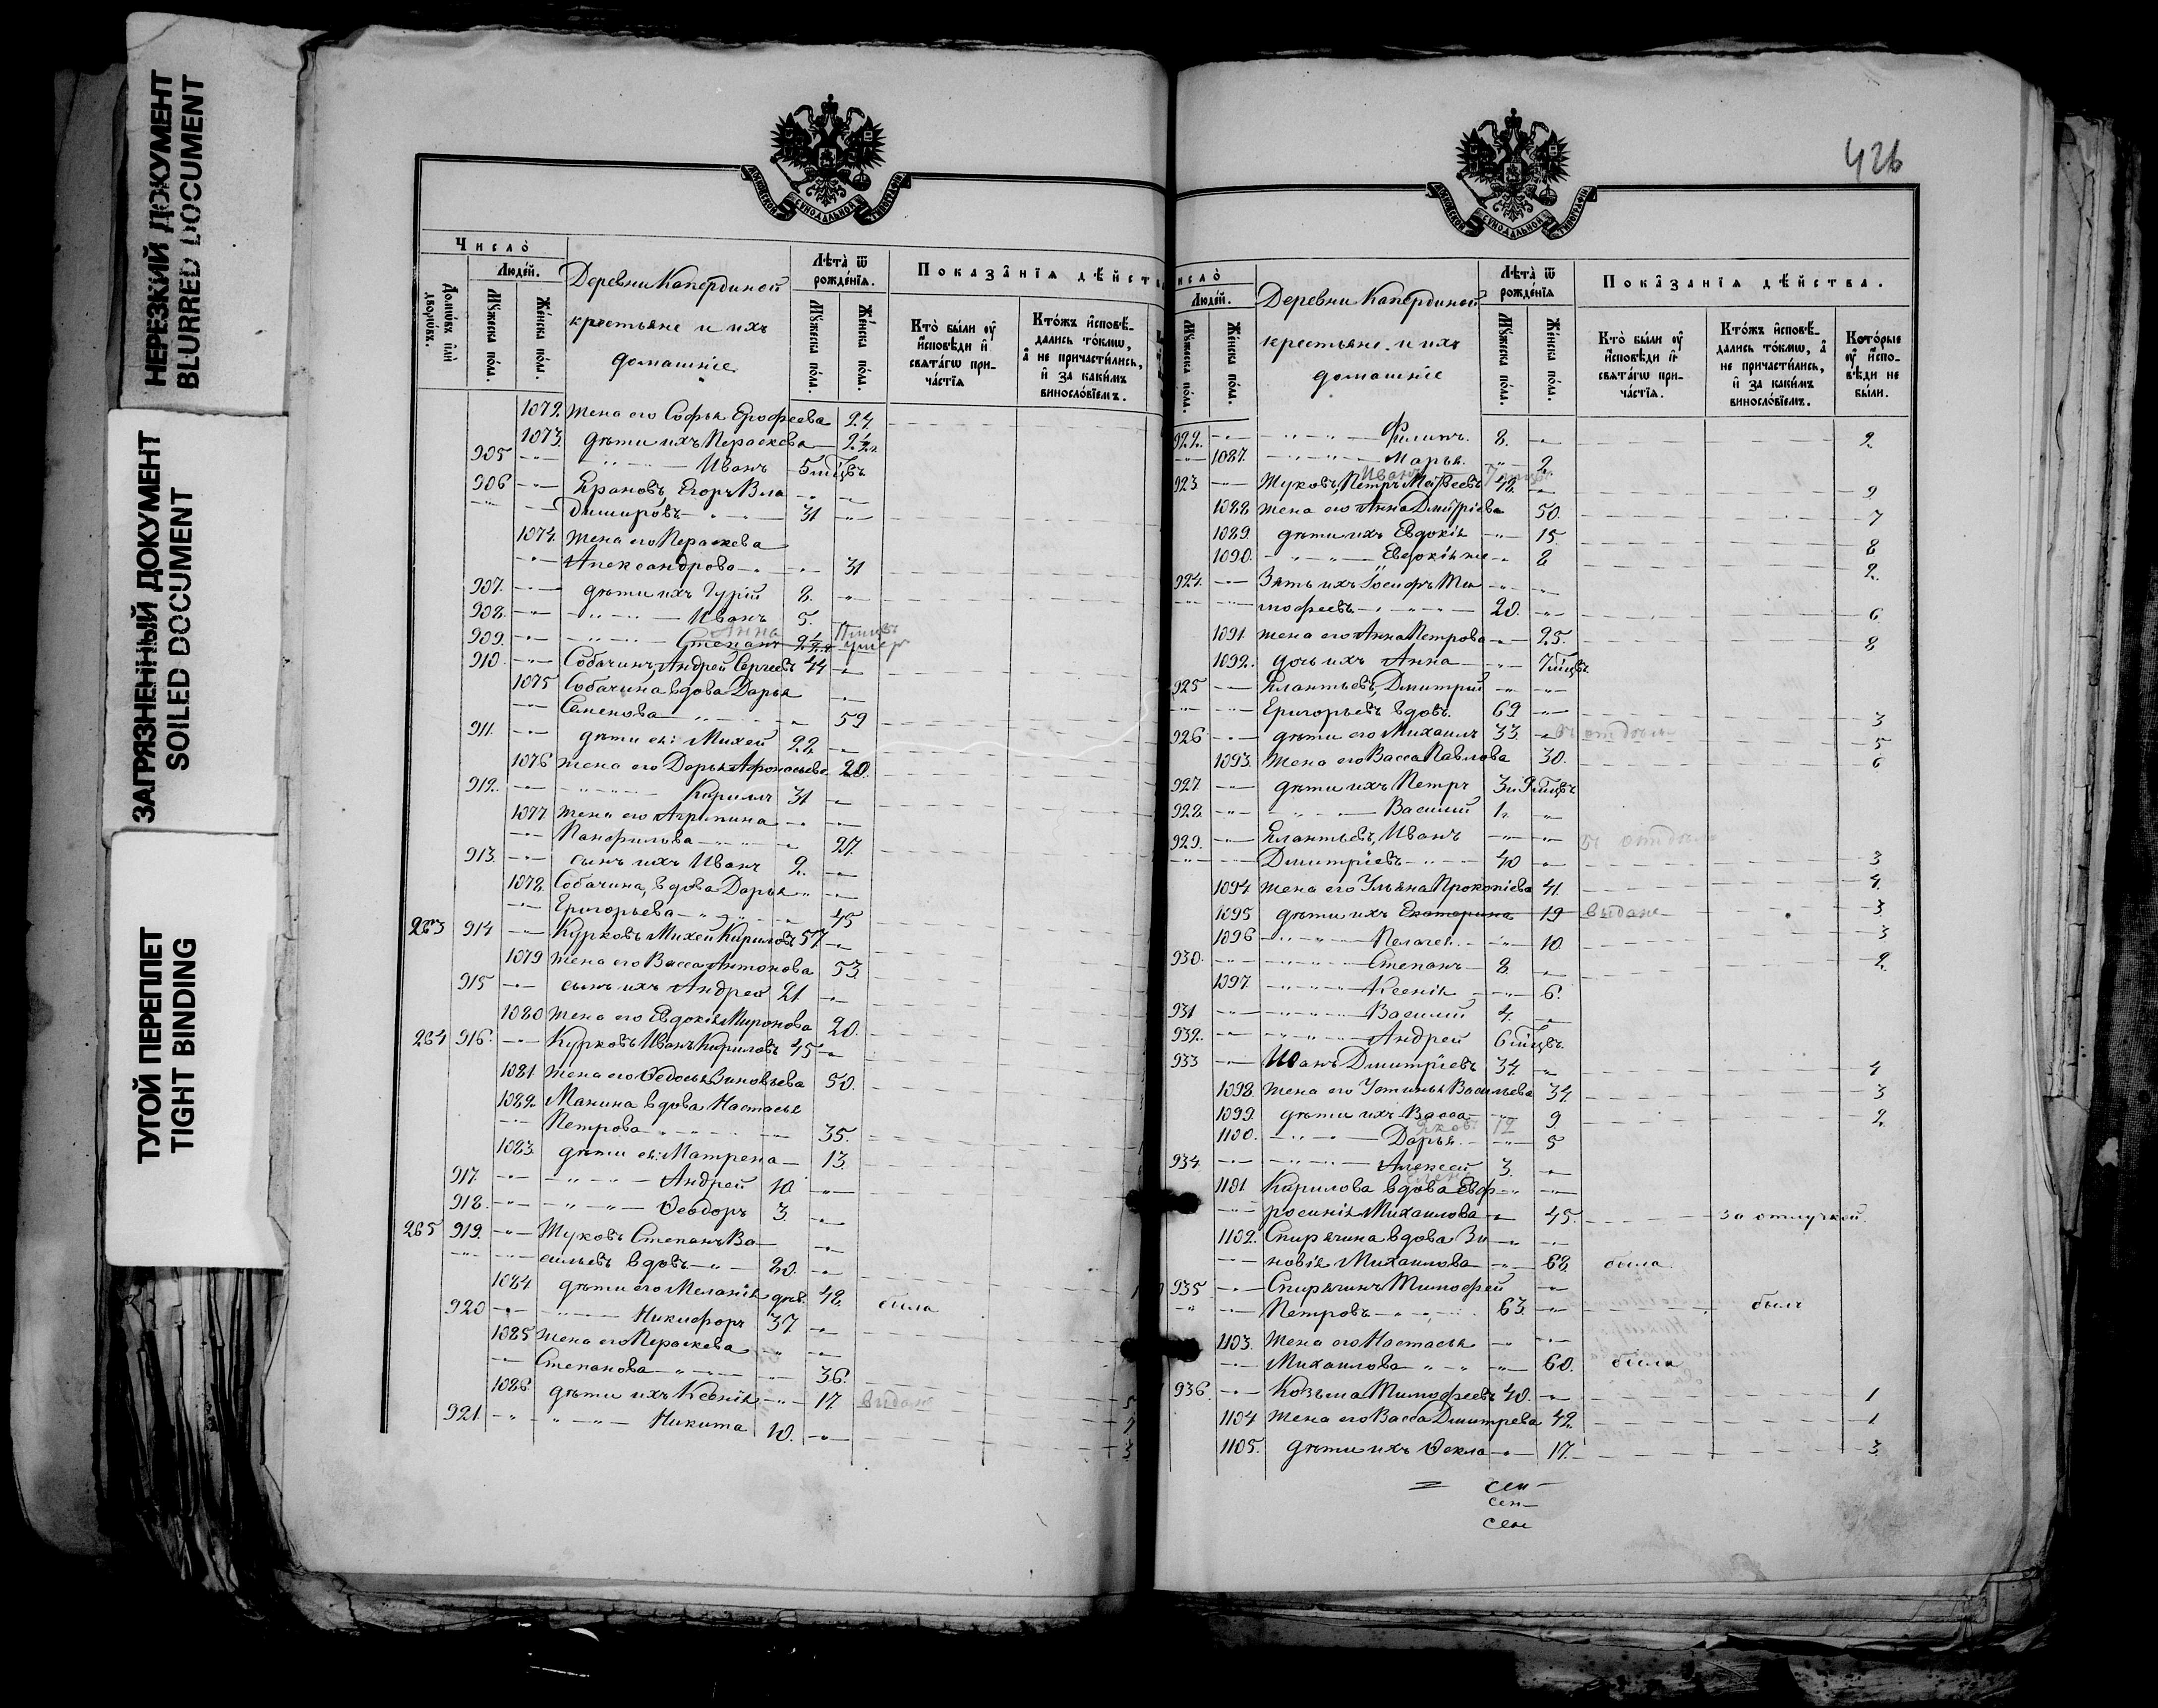 НЕРЕЗКИЙ ДОКУМЕНТ
BLURRED DOCUMENT
ЗАГРЯЗНЕННЫЙ ДОКУМЕНТ
SOILED DOCUMENT
ТУГОЙ ПЕРЕПЛЕТ
TIGHT BINDING
Число̀
Людей.
Домѡвъ или дворѡвъ.
Мꙋжеска пола.
Женска пола.
Деревни Капердиной
крестьяне и ихъ
домашніе
Лѣта ѿ рожденїѧ.
Мꙋжеска пола.
Женска пола.
Показанїѧ дѣйств
Кто были оу҆ исповѣди и свѧтагѡ причастїѧ
Ктожъ исповѣдались токмѡ, а не причастились, и за какимъ винословїемъ.
1072. Жена его Софья Ерофеева 24
1073. дѣти ихъ Параскева 2½
905 Иванъ 5 мѣцъ
906 Грановъ, Егоръ Вла
димировъ 31
1074. Жена его Параскева
Александрова 31
907. дѣти ихъ Гурій 8.
908. Иванъ 5.
Анна
909. Степанъ 2½ умер
910. Собачинъ, Андрей Сергеевъ 44
1075 Собачина вдова Дарья
Семенова 59
911. дѣти ея: Михей 22
1076 Жена его Дарья Афонасьева 20.
912. Кирилъ 31
1077 Жена его Агрипина
Панфилова 27.
913. сынъ ихъ Иванъ 2.
1078. Собачина, вдова Дарья
Григорьева 45
263 914 Курковъ Михей Кириловъ 57
1079 Жена его Васса Антонова 53.
915 сынъ ихъ Андрей 21
1080 Жена его Евдокія Миронова 20.
264 916. Курковъ Иванъ Кириловъ 45
1081 Жена его Ѳедосья Зиновьева 50.
1082. Манина вдова Настасья
Петрова 35.
1083. дѣти ея: Матрена 13.
917. Андрей 10
918. Ѳеодоръ 3.
265 919. Жуковъ Степанъ Ва
сильевъ вдовъ 80.
1084 дѣти его Меланія дѣв. 48. была
920 Никифоръ 37.
1085 Жена его Параскева
Степанова 36.
1086. дѣти ихъ Ксенія 17. выдана
921. Никита 10. 3
426
исло̀
Людей.
Мꙋжеска пола.
Женска пола.
Деревни Капердиной
крестьяне и ихъ
домашніе
Лѣта ѿ рожденїѧ
Мꙋжеска пола.
Женска пола.
Показанїѧ дѣйства.
Кто были оу҆ исповѣди и свѧтагѡ причастїѧ.
Ктожъ исповѣдались токмѡ, а не причастились, и за какимъ винословїемъ.
Которые оу҆ исповѣди не были.
922. Филипъ. 8. 2
1087. Марья. 2
Иванъ
923. Жуковъ, Петръ Матвеевъ 48. 2
1088 Жена его Анна Дмитріева 50. 7
1089. дѣти ихъ Евдокія 15. 8
1090. Евдокія же 8 2.
924. Зять ихъ Іосифъ Ти
мофеевъ 20. 6
1091. Жена его Анна Петрова 25. 8
1092. дочь ихъ Анна 7 мѣцъ.
925 Елантьевъ, Дмитрій
Григорьевъ вдовъ. 69 3
926 дѣти его Михаилъ 33. 5
1093. Жена его Васса Павлова 30. 6
927. дѣти ихъ Петръ 3 и 9 мѣцъ
928. Василій 1.
929. Елантьевъ, Иванъ
Дмитріевъ 40 3
1094 Жена его Ульяна Прокопіева 41. 4.
1095 дѣти ихъ Екатерина 19 выдана 3
1096 Пелагея. 10 3
930. Степанъ 8. 2.
1097. Ксенія 6.
931 Василій 4.
932. Андрей 6 мѣцъ.
933 Иванъ Дмитріевъ 34. 4
1098. Жена его Устинья Васильева 34. 3
1099. дѣти ихъ Васса 9 2.
Яковъ 12
1100. Дарья. 5
934. Алексей 3.
1101 Карилова вдова Евф
росинія Михаилова 45. За отлучкой.
1102. Спирячина вдова Зи
новія Михаилова 68 была
935 Спирячинъ Тимофей
Петровъ 63. былъ
1103. Жена его Настасья
Михаилова 60. была
936. Козьма Тимофеевъ 40. 1
1104 Жена его Васса Дмитрева 42. 1
1105. дѣти ихъ Ѳекла 17. 3.
сен
сен
сен